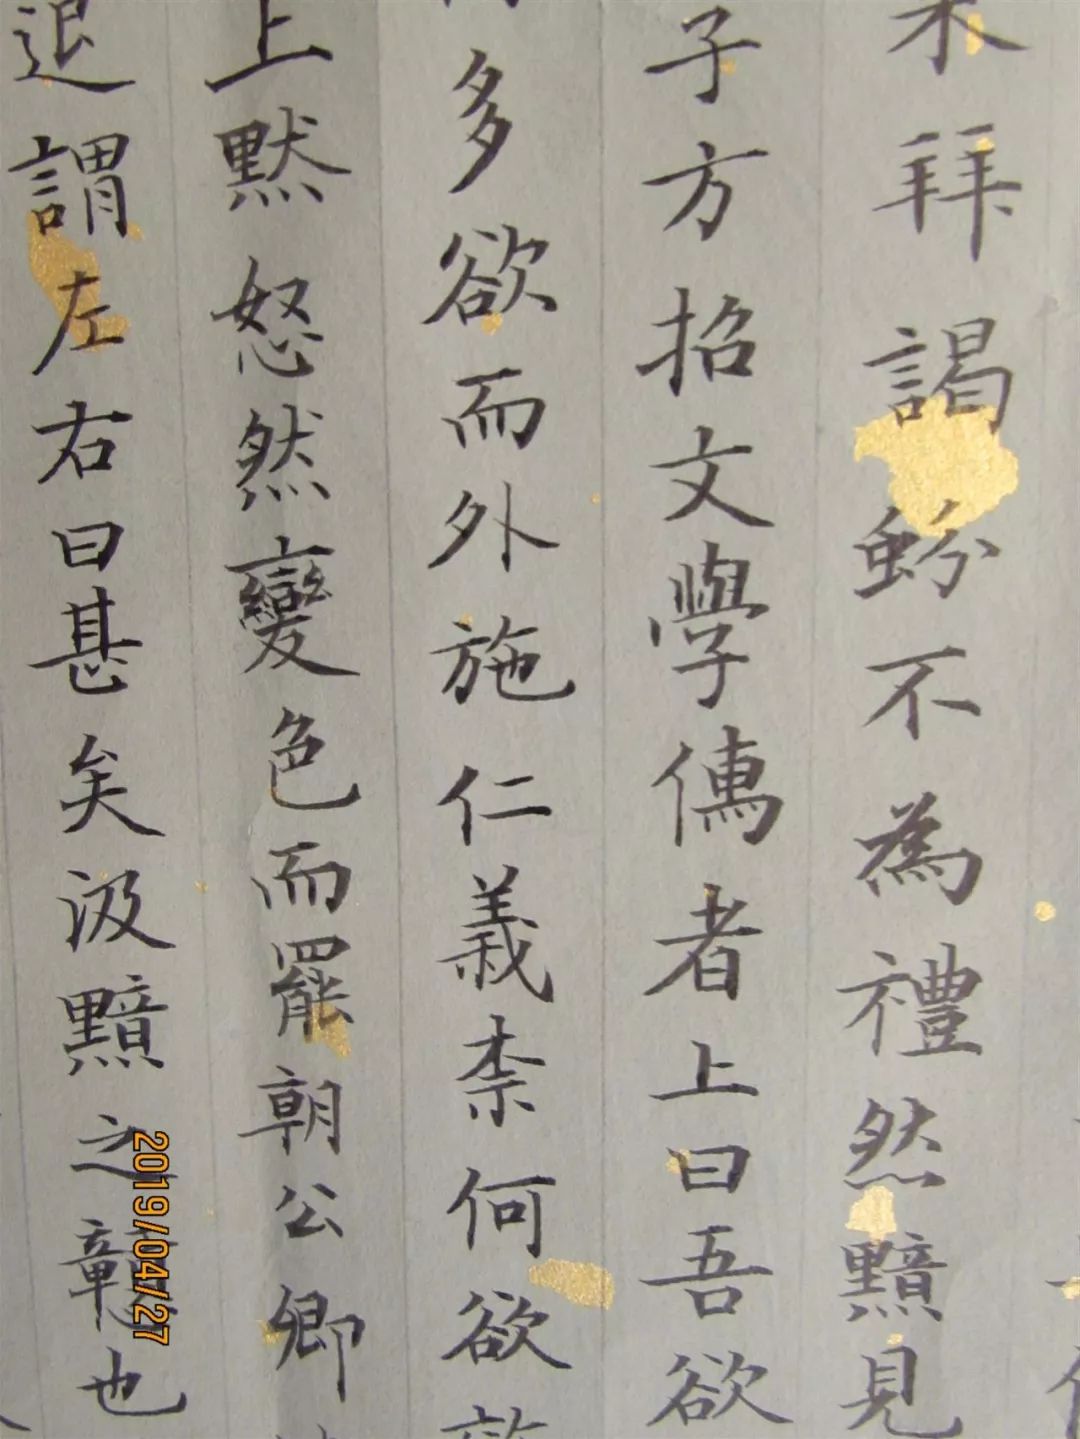 拜謁蚡不為禮然黯見
子方招文學儒者上曰吾欲
多欲而外施仁義柰何欲
上默怒然變色而罷朝公卿
退謂左右曰甚矣汲黯之戇也
2019/04/27